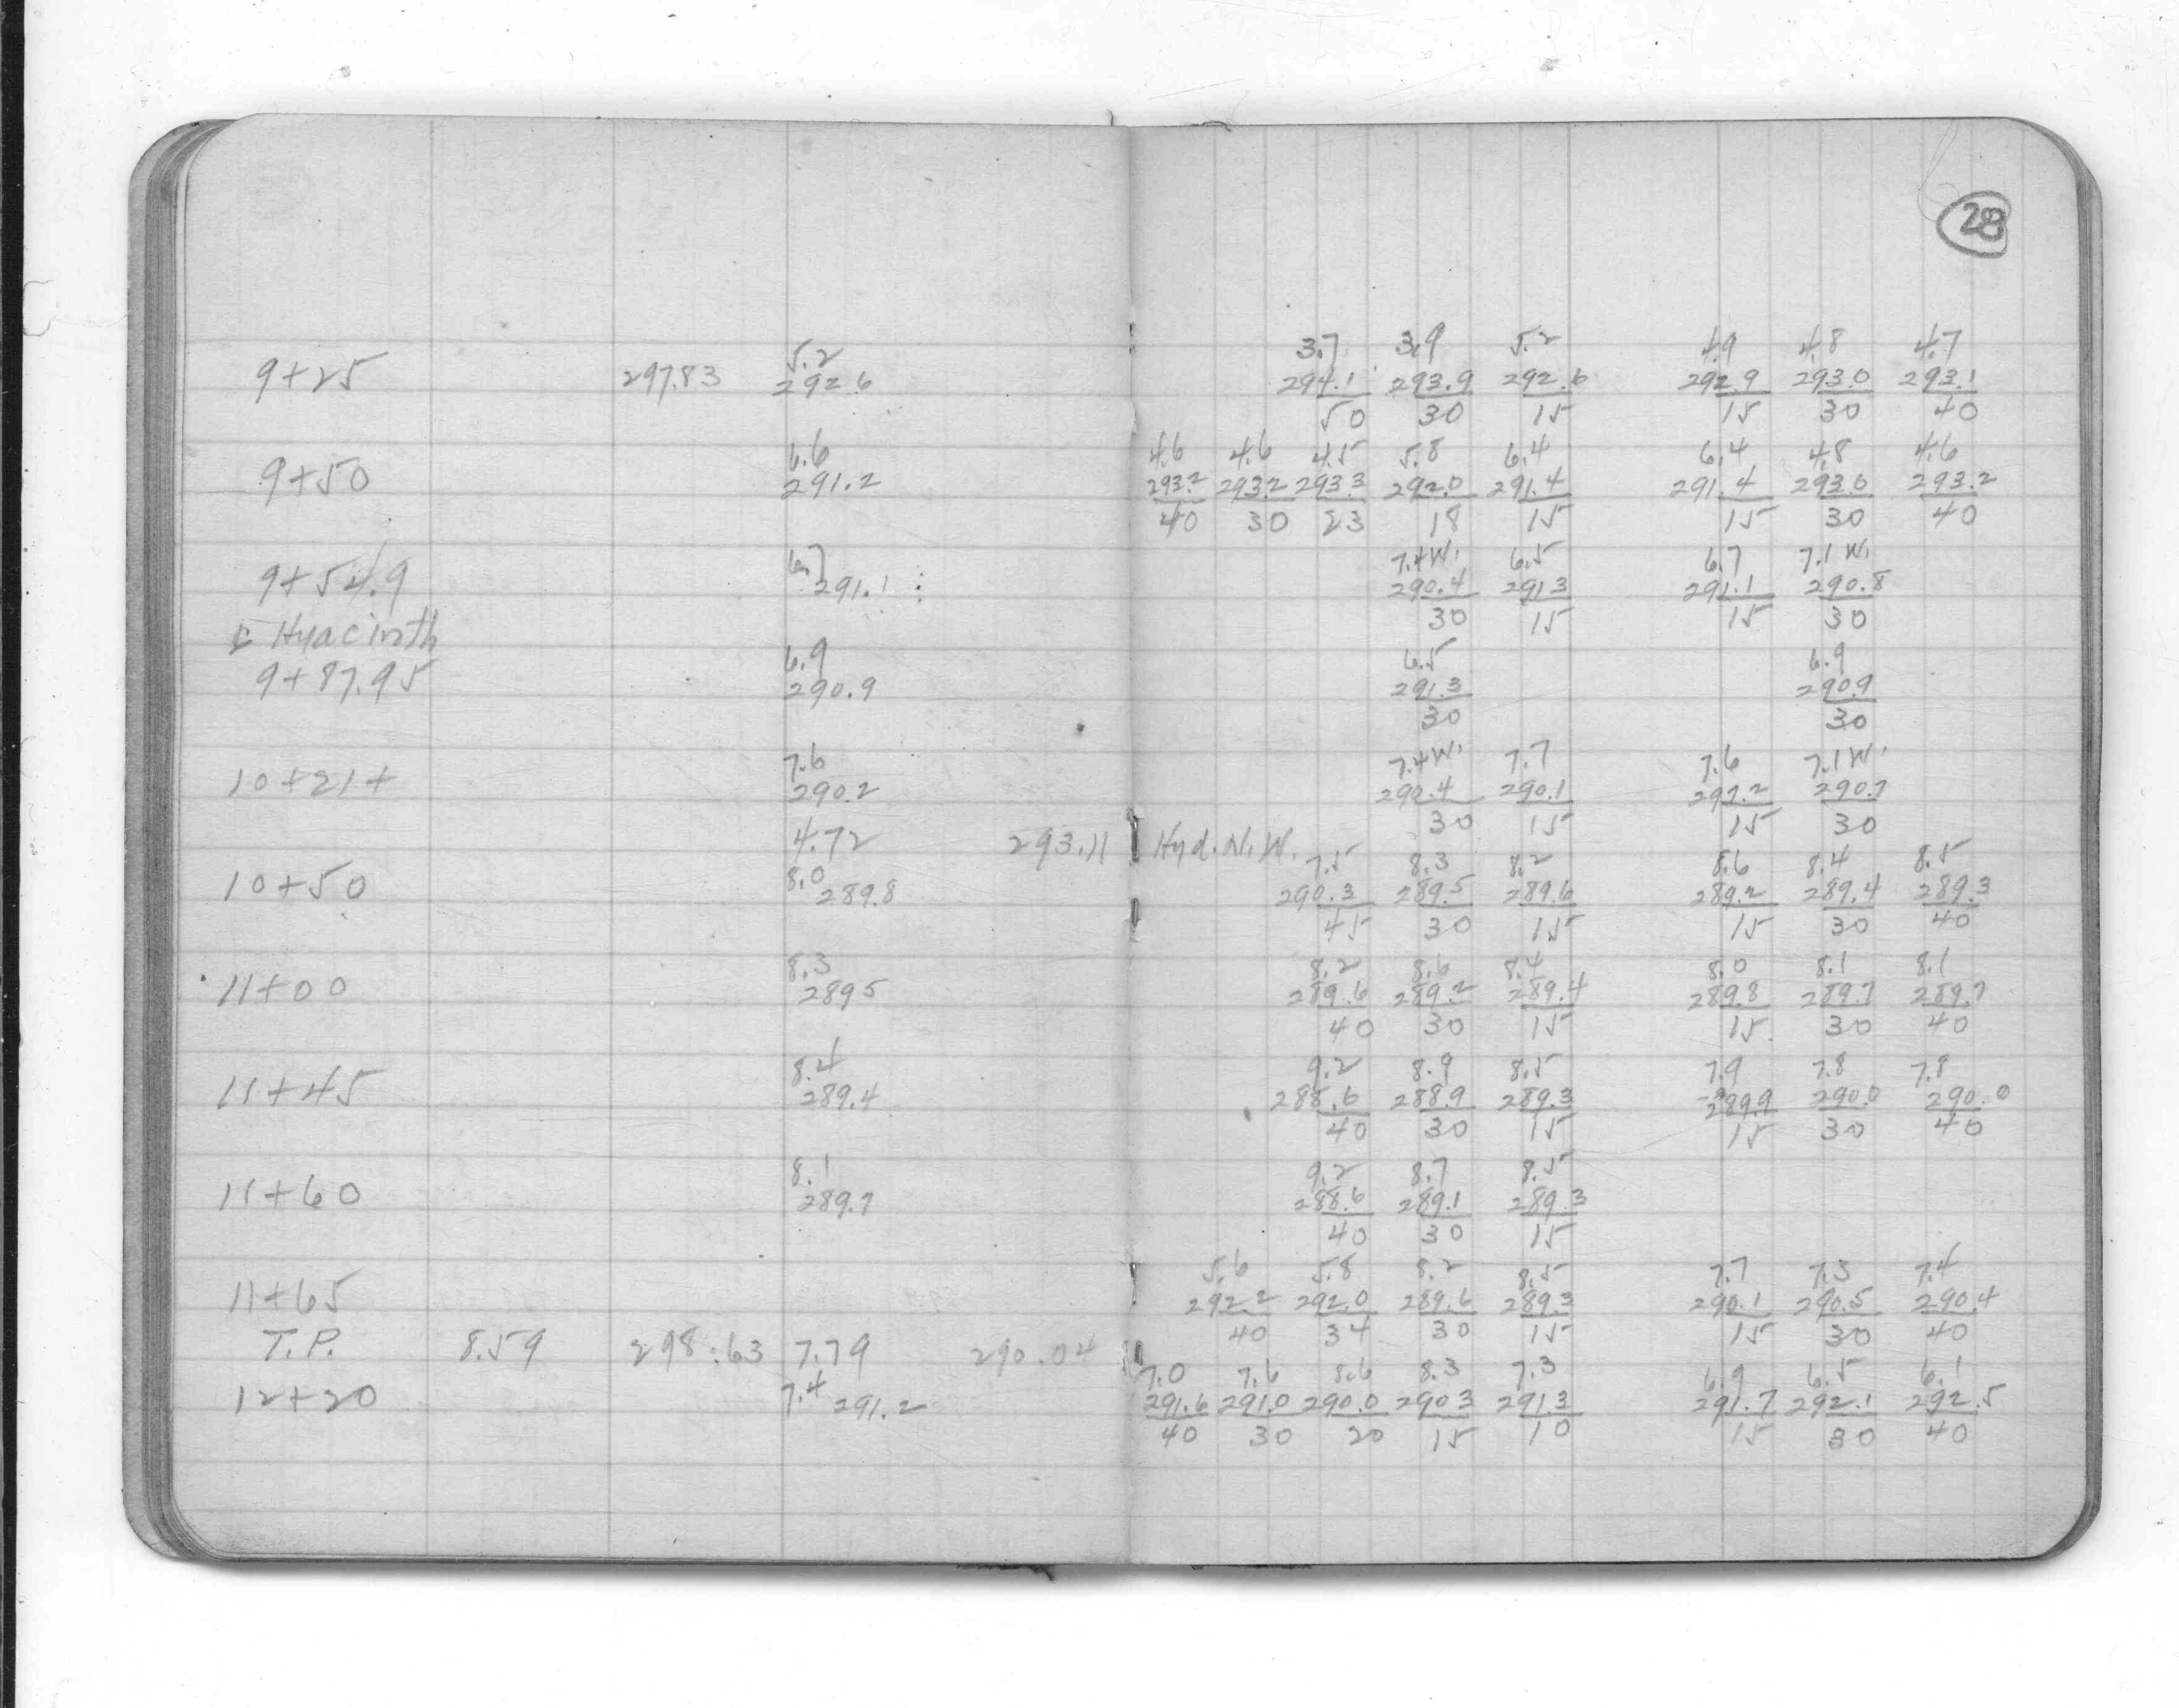 28
5.2 3.7 3.9 5.2 4.9 4.8 4.7
9+25 297.83 292.6 294.1 293.9 292.6 292.9 293.0 293.1
50 30 15 15 30 40
6.6 4.6 4.6 4.5 5.8 6.4 6.4 4.8 4.6
9+50 291.2 293.2 293.2 293.3 292.0 291.4 291.4 293.0 293.2
40 30 23 18 15 15 30 40
6.7 7.4W. 6.5 6.7 7.1W.
9+54.9 291.1 290.4 291.3 291.1 290.8
30 15 15 30
Hyacinth
6.9 6.5 6.9
9+87.95 290.9 291.3 290.9
30 30
7.6 7.4W. 7.7 7.6 7.1W.
10+21+ 290.2 290.4 290.1 290.2 290.7
30 15 15 30
4.72 293.11 Hyd. N.W.
8.0 7.5 8.3 8.2 8.6 8.4 8.5
10+50 289.8 290.3 289.5 289.6 289.2 289.4 289.3
45 30 15 15 30 40
8.3 8.2 8.6 8.4 8.0 8.1 8.1
11+00 289.5 289.6 289.2 289.4 289.8 289.7 289.7
40 30 15 15 30 40
8.4 9.2 8.9 8.5 7.9 7.8 7.8
11+45 289.4 288.6 288.9 289.3 289.9 290.0 290.0
40 30 15 15 30 40
8.1 9.2 8.7 8.5
11+60 289.7 288.6 289.1 289.3
40 30 15
5.6 5.8 8.2 8.5 7.7 7.3 7.4
11+65 292.2 292.0 289.6 289.3 290.1 290.5 290.4
40 34 30 15 15 30 40
T.P. 8.59 298.63 7.79 290.04
7.4 7.0 7.6 8.6 8.3 7.3 6.9 6.5 6.1
12+20 291.2 291.6 291.0 290.0 290.3 291.3 291.7 292.1 292.5
40 30 20 15 10 15 30 40